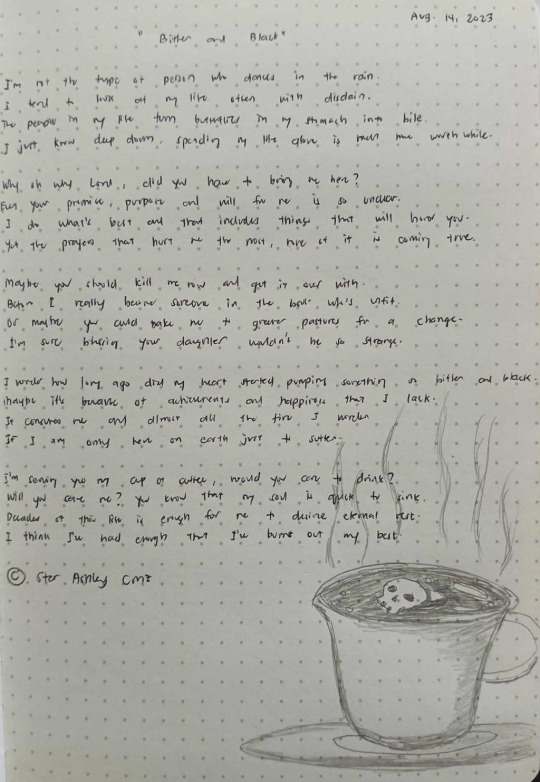 Aug. 14, 2023
"Bitter and Black"
I'm not the type of person who dances in the rain.
I tend to look at my life often with disdain.
The people in my life turn butterflies in my stomach into bile.
I just know deep down, spending my life alone is much more worthwhile.
Why oh why Lord, did you have to bring me here?
Even your promise, purpose and will for me is so unclear.
I do what's best and that includes things that will honor you.
Yet the prayers that hurt me the most, none of it is coming true.
Maybe you should kill me now and get it over with.
Before I really become someone in the book who's unfit.
Or maybe you could take me to greener pastures for a change.
I'm sure blessing your daughter wouldn't be so strange.
I wonder how long ago did my heart started pumping something so bitter and black.
Maybe it's because of achievements and happiness that I lack.
It consumes me and almost all the time I wonder
If I am only here on earth just to suffer.
I'm sending you my cup of coffee, would you care to drink?
Will you save me? You know that my soul is quick to sink.
Decades of this life is enough for me to desire eternal rest.
I think I've had enough that I've burnt out my best.
© Star Ashley